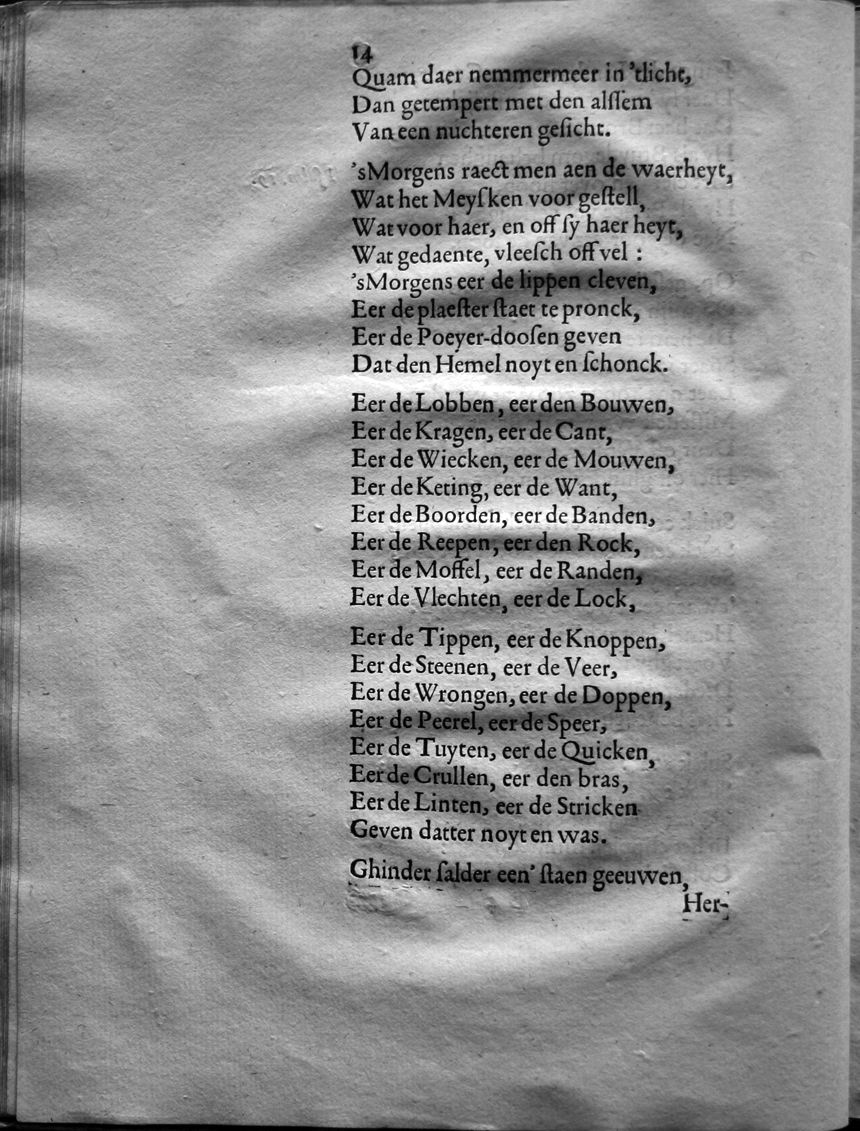 14
Quam daer nemmermeer in 'tlicht,
Dan getempert met den alſſem
Van een nuchteren geſicht.
'sMorgens raect men aen de waerheyt,
Wat het Meyſken voor geſtell,
Wat voor haer, en off ſy haer heyt,
Wat gedaente, vleeſch off vel :
'sMorgens eer de lippen cleven,
Eer de plaeſter ſtaet te pronck,
Eer de Poeyer-dooſen geven
Dat den Hemel noyt en ſchonck.
Eer de Lobben, eer den Bouwen,
Eer de Kragen, eer de Cant,
Eer de Wiecken, eer de Mouwen,
Eer de Keting, eer de Want,
Eer de Boorden, eer de Banden,
Eer de Reepen, eer den Rock,
Eer de Moffel, eer de Randen,
Eer de Vlechten, eer de Lock,
Eer de Tippen, eer de Knoppen,
Eer de Steenen, eer de Veer,
Eer de Wrongen, eer de Doppen,
Eer de Peerel, eer de Speer,
Eer de Tuyten, eer de Quicken,
Eer de Crullen, eer den bras,
Eer de Linten, eer de Stricken
Geven datter noyt en was.
Ghinder ſalder een' ſtaen geeuwen,
Her-